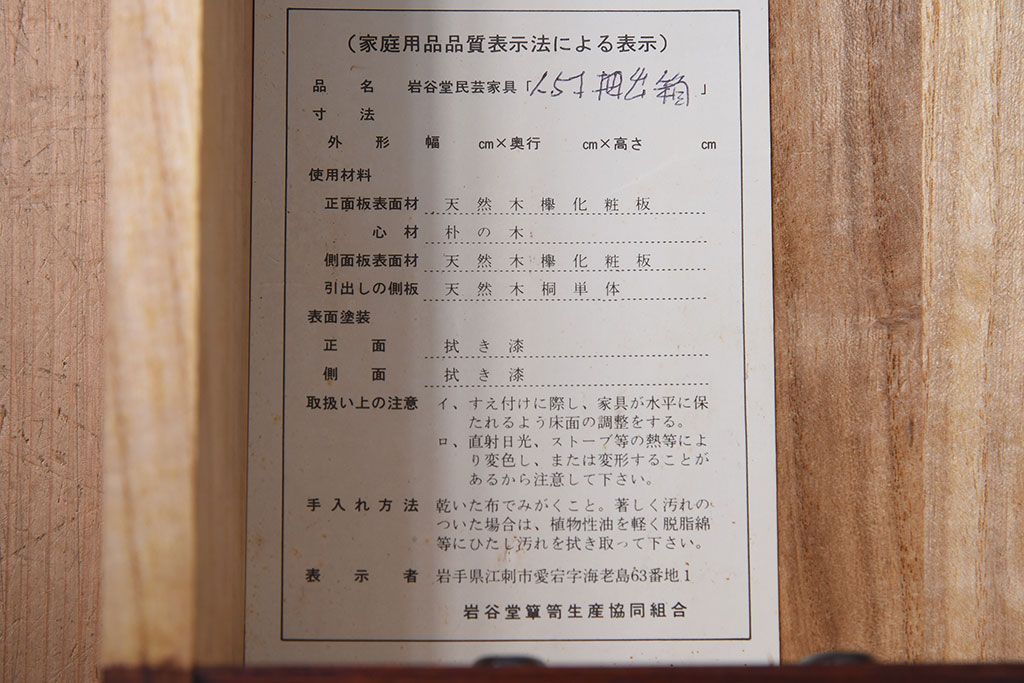 （家庭用品品質表示法による表示）
品名 岩谷堂民芸家具「1.5才抽出箱」
寸法
外形 幅 cm×奥行 cm×高さ cm
使用材料
正面板表面材 天然木欅化粧板
心材 朴の木
側面板表面材 天然木欅化粧板
引出しの側板 天然木桐単体
表面塗装
正面 拭き漆
側面 拭き漆
取扱い上の注意 イ、すえ付けに際し、家具が水平に保
たれるよう床面の調整をする。
ロ、直射日光、ストーブ等の熱等によ
り変色し、または変形することが
あるから注意して下さい。
手入れ方法 乾いた布でみがくこと。著しく汚れの
ついた場合は、植物性油を軽く脱脂綿
等にひたし汚れを拭き取って下さい。
表示者 岩手県江刺市愛宕字海老島63番地1
岩谷堂簞笥生産協同組合